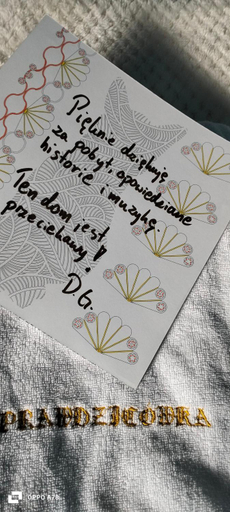 Pięknie dziękuję
za pobyt, opowiedziane
historie i muzykę.
Ten dom jest
przeciekawy!
D.G.
PRAWDZICÓWKA
OPPO A78